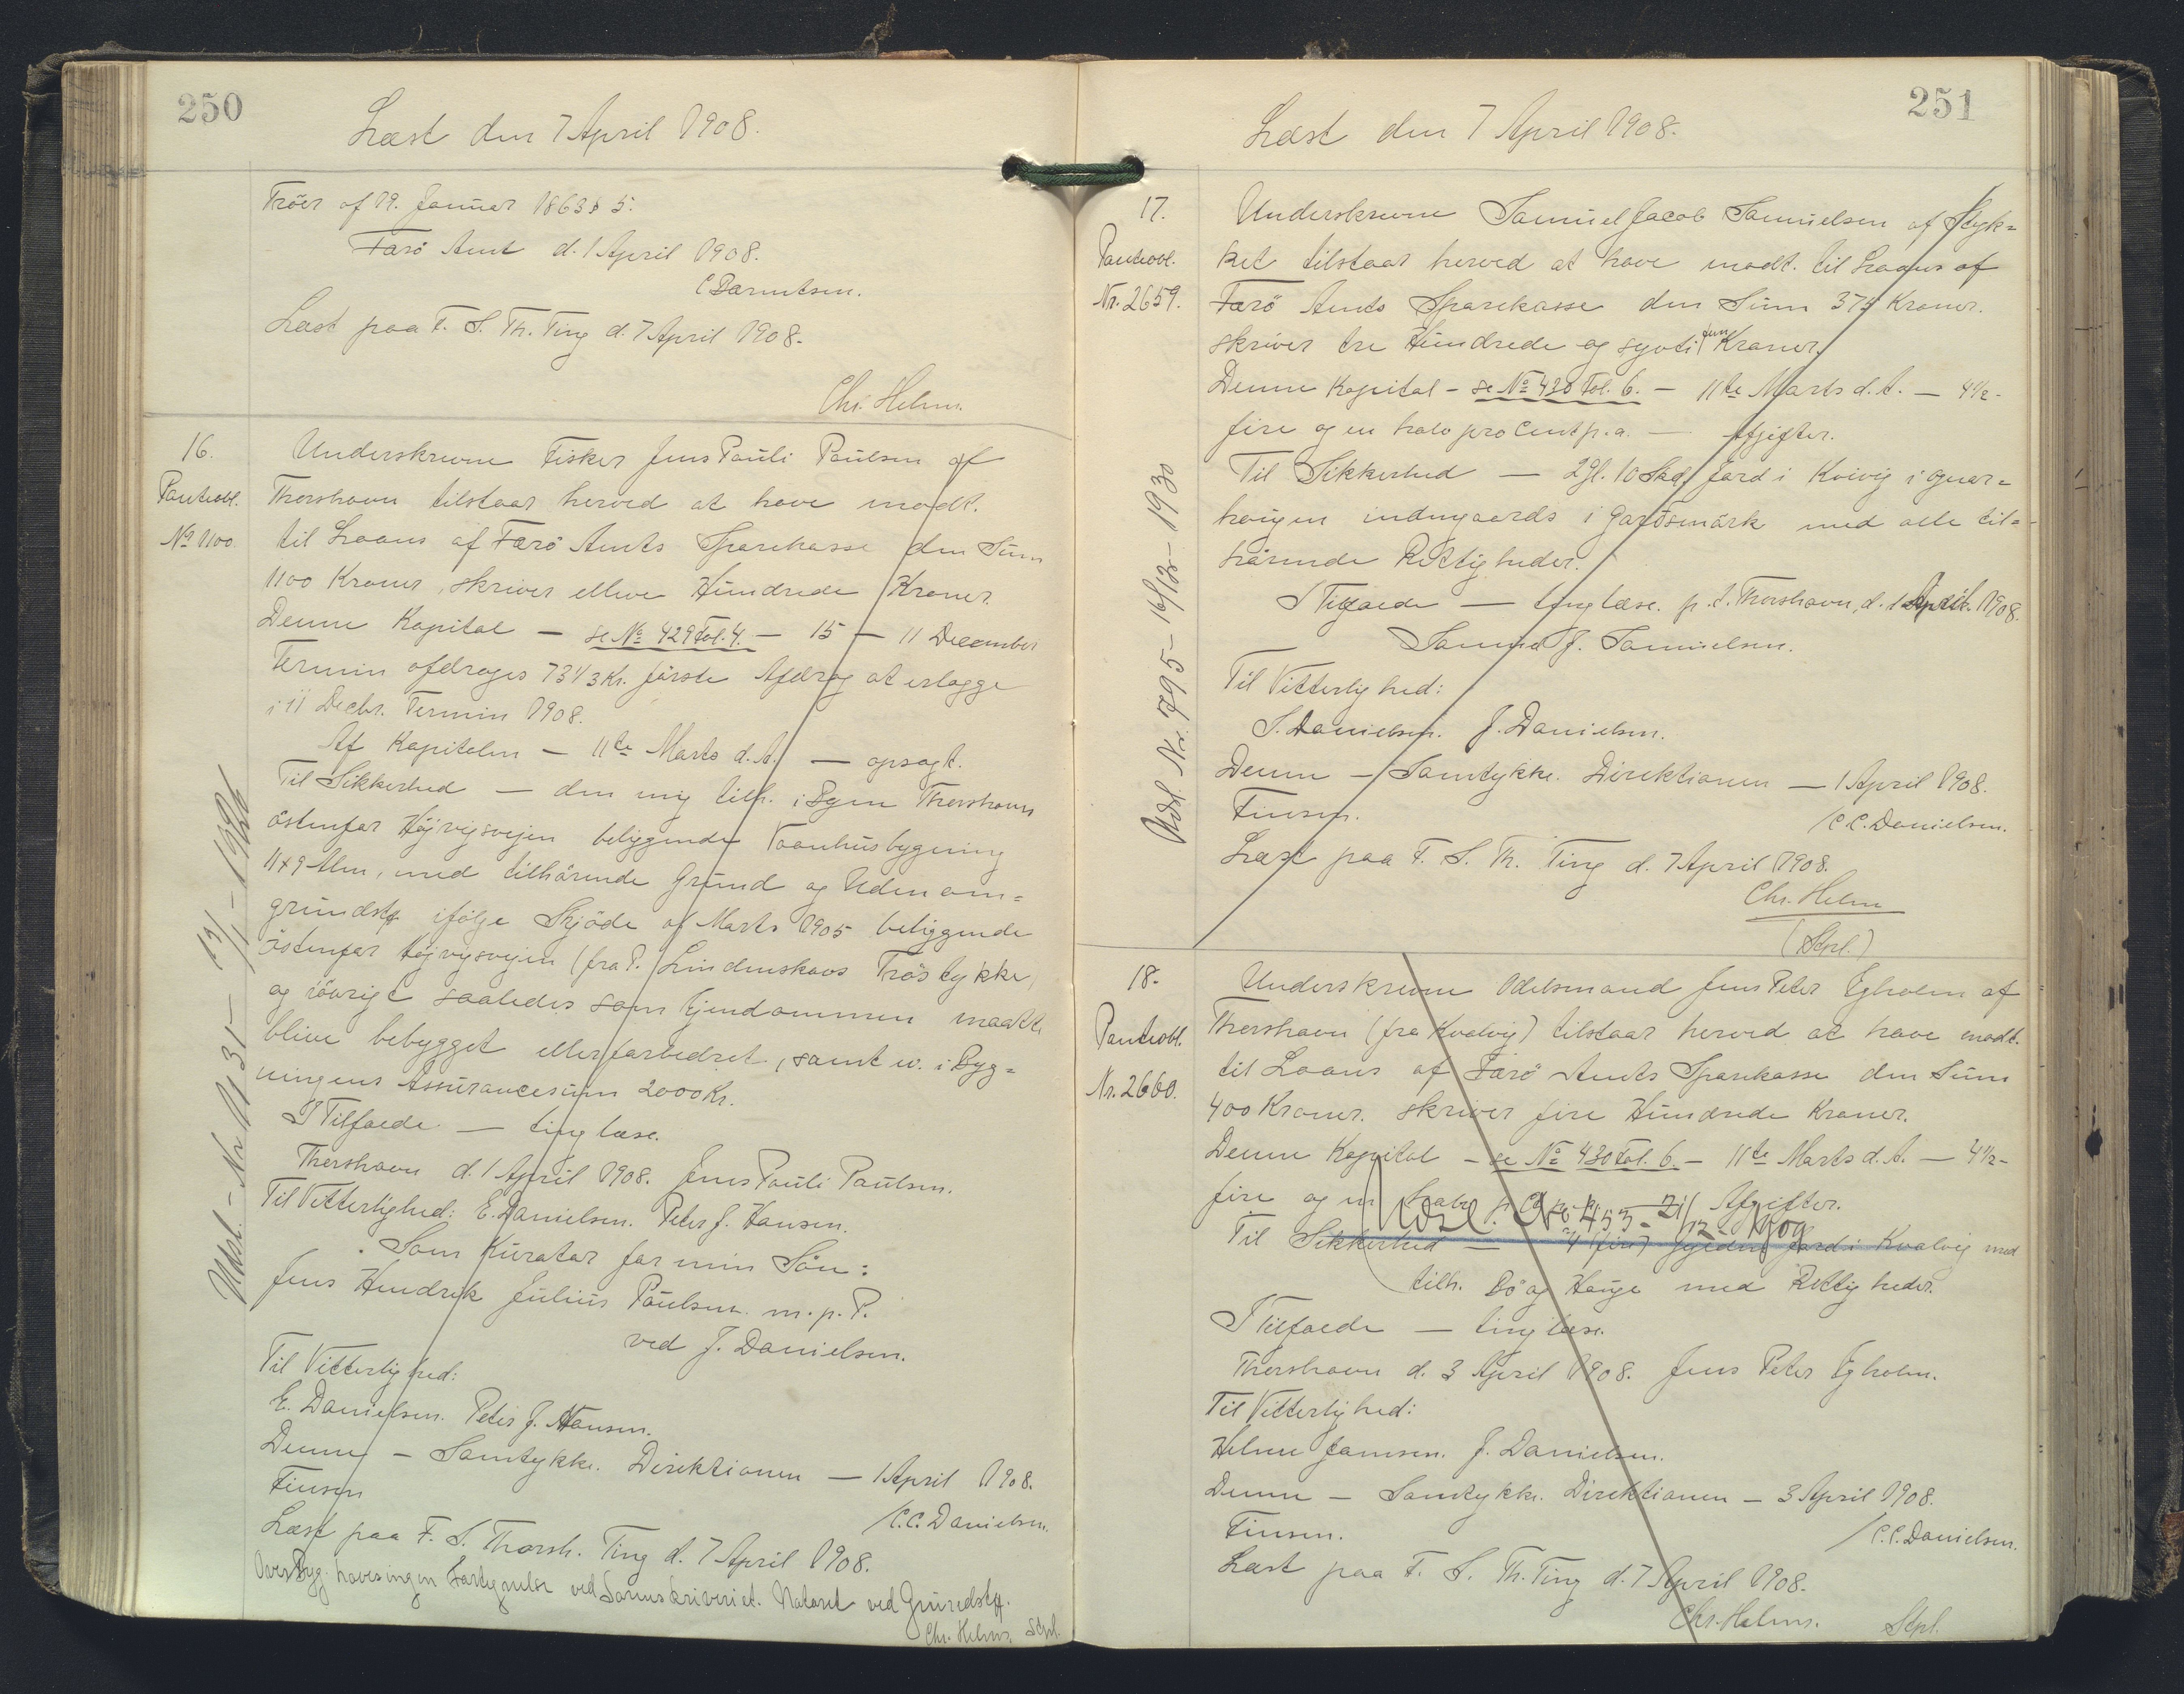 250
Læst den 7 April 1908.
Tröer af 19. Januar 1863 § 5.
Færö Amt d. 1 April 1908.
C Bærentsen.
Læst paa F. S. Th. Ting d. 7 April 1908.
Chr. Helms.
16.
Panteobl.
No 1100.
Underskrevne Fisker Jens Pauli Paulsen af
Thorshavn tilstaar herved at have modt.
til Laans af Færö Amts Sparekasse den Sum
1100 Kroner, skriver elleve Hundrede Kroner.
Denne Kapital — se No 429 Fol. 4. — 15 — 11 December
Termin afdrages 73 1/3 Kr. förste Afdrag at erlægge
i 11 Decbr. Termin 1908.
Af Kapitalen — 11te Marts d. A. — opsagt.
Til Sikkerhed — den mig tilh. i Byen Thorshavn
östenfor Højvigsvejen beliggende Vaanhusbygning
11 x 9 Alen, med tilhörende Grund og Udenom=
grundstk ifölge Skjöde af Marts 1905 beliggende
östenfor Højvigsvejen (fra P. Lindenskovs Tröstykke,
og iövrigt saaledes som Ejendommen maatte
blive bebygget eller forbedret, samt w. i Byg=
ningens Assurancesum 2000 Kr.
I Tilfælde — tinglæse.
Thorshavn d. 1 April 1908. Jens Pauli Paulsen.
Til Vitterlighed: E. Danielsen. Peter J. Hansen.
Som Kurator for min Sön:
Jens Hendrik Julius Paulsen m. p. P.
ved J. Danielsen.
Til Vitterlighed:
E. Danielsen. Peter J. Hansen.
Denne — Samtykke. Direktionen — 1 April 1908.
Finsen
/C.C. Danielsen.
Læst paa F. S. Thorsh. Ting d. 7 April 1908.
Over Byg. haves ingen Fæstegnelse ved Sorenskriveriet. Noteret ved Grundstk.
Chr. Helms. Stpl.
Udsl. - Nr. 1131 - 13/1 - 1926
251
Læst den 7 April 1908.
17.
Panteobl.
Nr. 2659.
Underskrevne Samuel Jacob Samuelsen af Styk=
ket tilstaar herved at have modt. til Laans af
Færö Amts Sparekasse den Sum 375 Kroner.
skriver tre Hundrede og syvti fem Kroner.
Denne Kapital — se No 430 Fol. 6. — 11te Marts d. A. — 4 1/2 -
fire og en halv pro Cent p. a. — Afgifter.
Til Sikkerhed — 2 Gl. 10 Skd. Jord i Kvivig i
haugen indengaards i med alle til=
hörende Rettigheder.
I Tilfælde — tinglæse. p. t. Thorshavn, d. 1 April 1908.
Samuel J. Samuelsen.
Til Vitterlighed:
S. Danielsen. J. Danielsen.
Denne — Samtykke. Direktionen — 1 April 1908.
Finsen.
/C.C. Danielsen.
Læst paa F. S. Th. Ting d. 7 April 1908.
Chr. Helms
(Stpl.)
Udsl. Nr. 795 - 16/12 - 1930
18.
Panteobl.
Nr. 2660.
Underskrevne Odelsmand Jens Peter Egholm af
Thorshavn (fra Kvalvig) tilstaar herved at have modt.
til Laans af Færö Amts Sparekasse den Sum
400 Kroner. skriver fire Hundrede Kroner.
Denne Kapital — se No 430 Fol. 6. — 11te Marts d. A. — 4 1/2 -
fire og en halv p. Ct. p. a. — Afgifter.
Udsl. No 453 - 21/12 - 1909
Til Sikkerhed — 4 (fire) Gylden Jord i Kvalvig med
tilh. Bö og Hauge med Rettigheder.
I Tilfælde — tinglæse.
Thorshavn d. 3 April 1908. Jens Peter Egholm.
Til Vitterlighed:
Helene Jansen. J. Danielsen.
Denne — Samtykke. Direktionen — 3 April 1908.
Finsen.
/C.C. Danielsen.
Læst paa F. S. Th. Ting d. 7 April 1908.
Chr. Helms. Stpl.